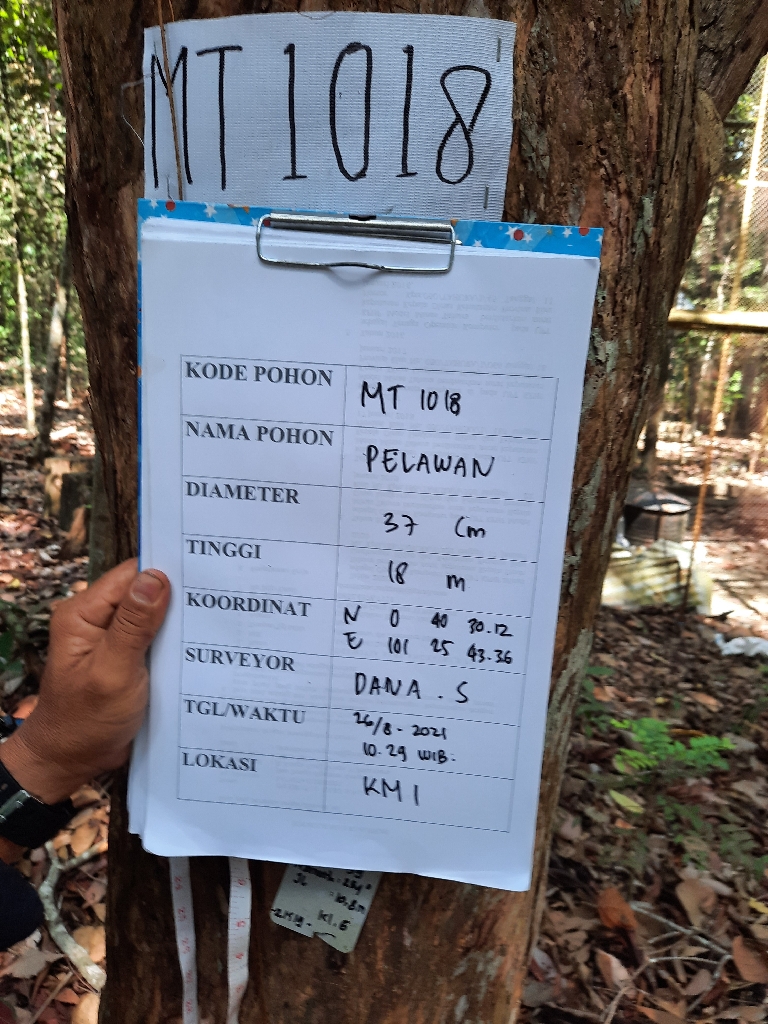 MT 1018
KODE POHON MT 1018
NAMA POHON PELAWAN
DIAMETER 37 Cm
TINGGI 18 m
KOORDINAT N 0 40 30.12
E 101 25 43.36
SURVEYOR DANA . S
TGL/WAKTU 26/8 - 2021
10.29 WIB.
LOKASI KM 1